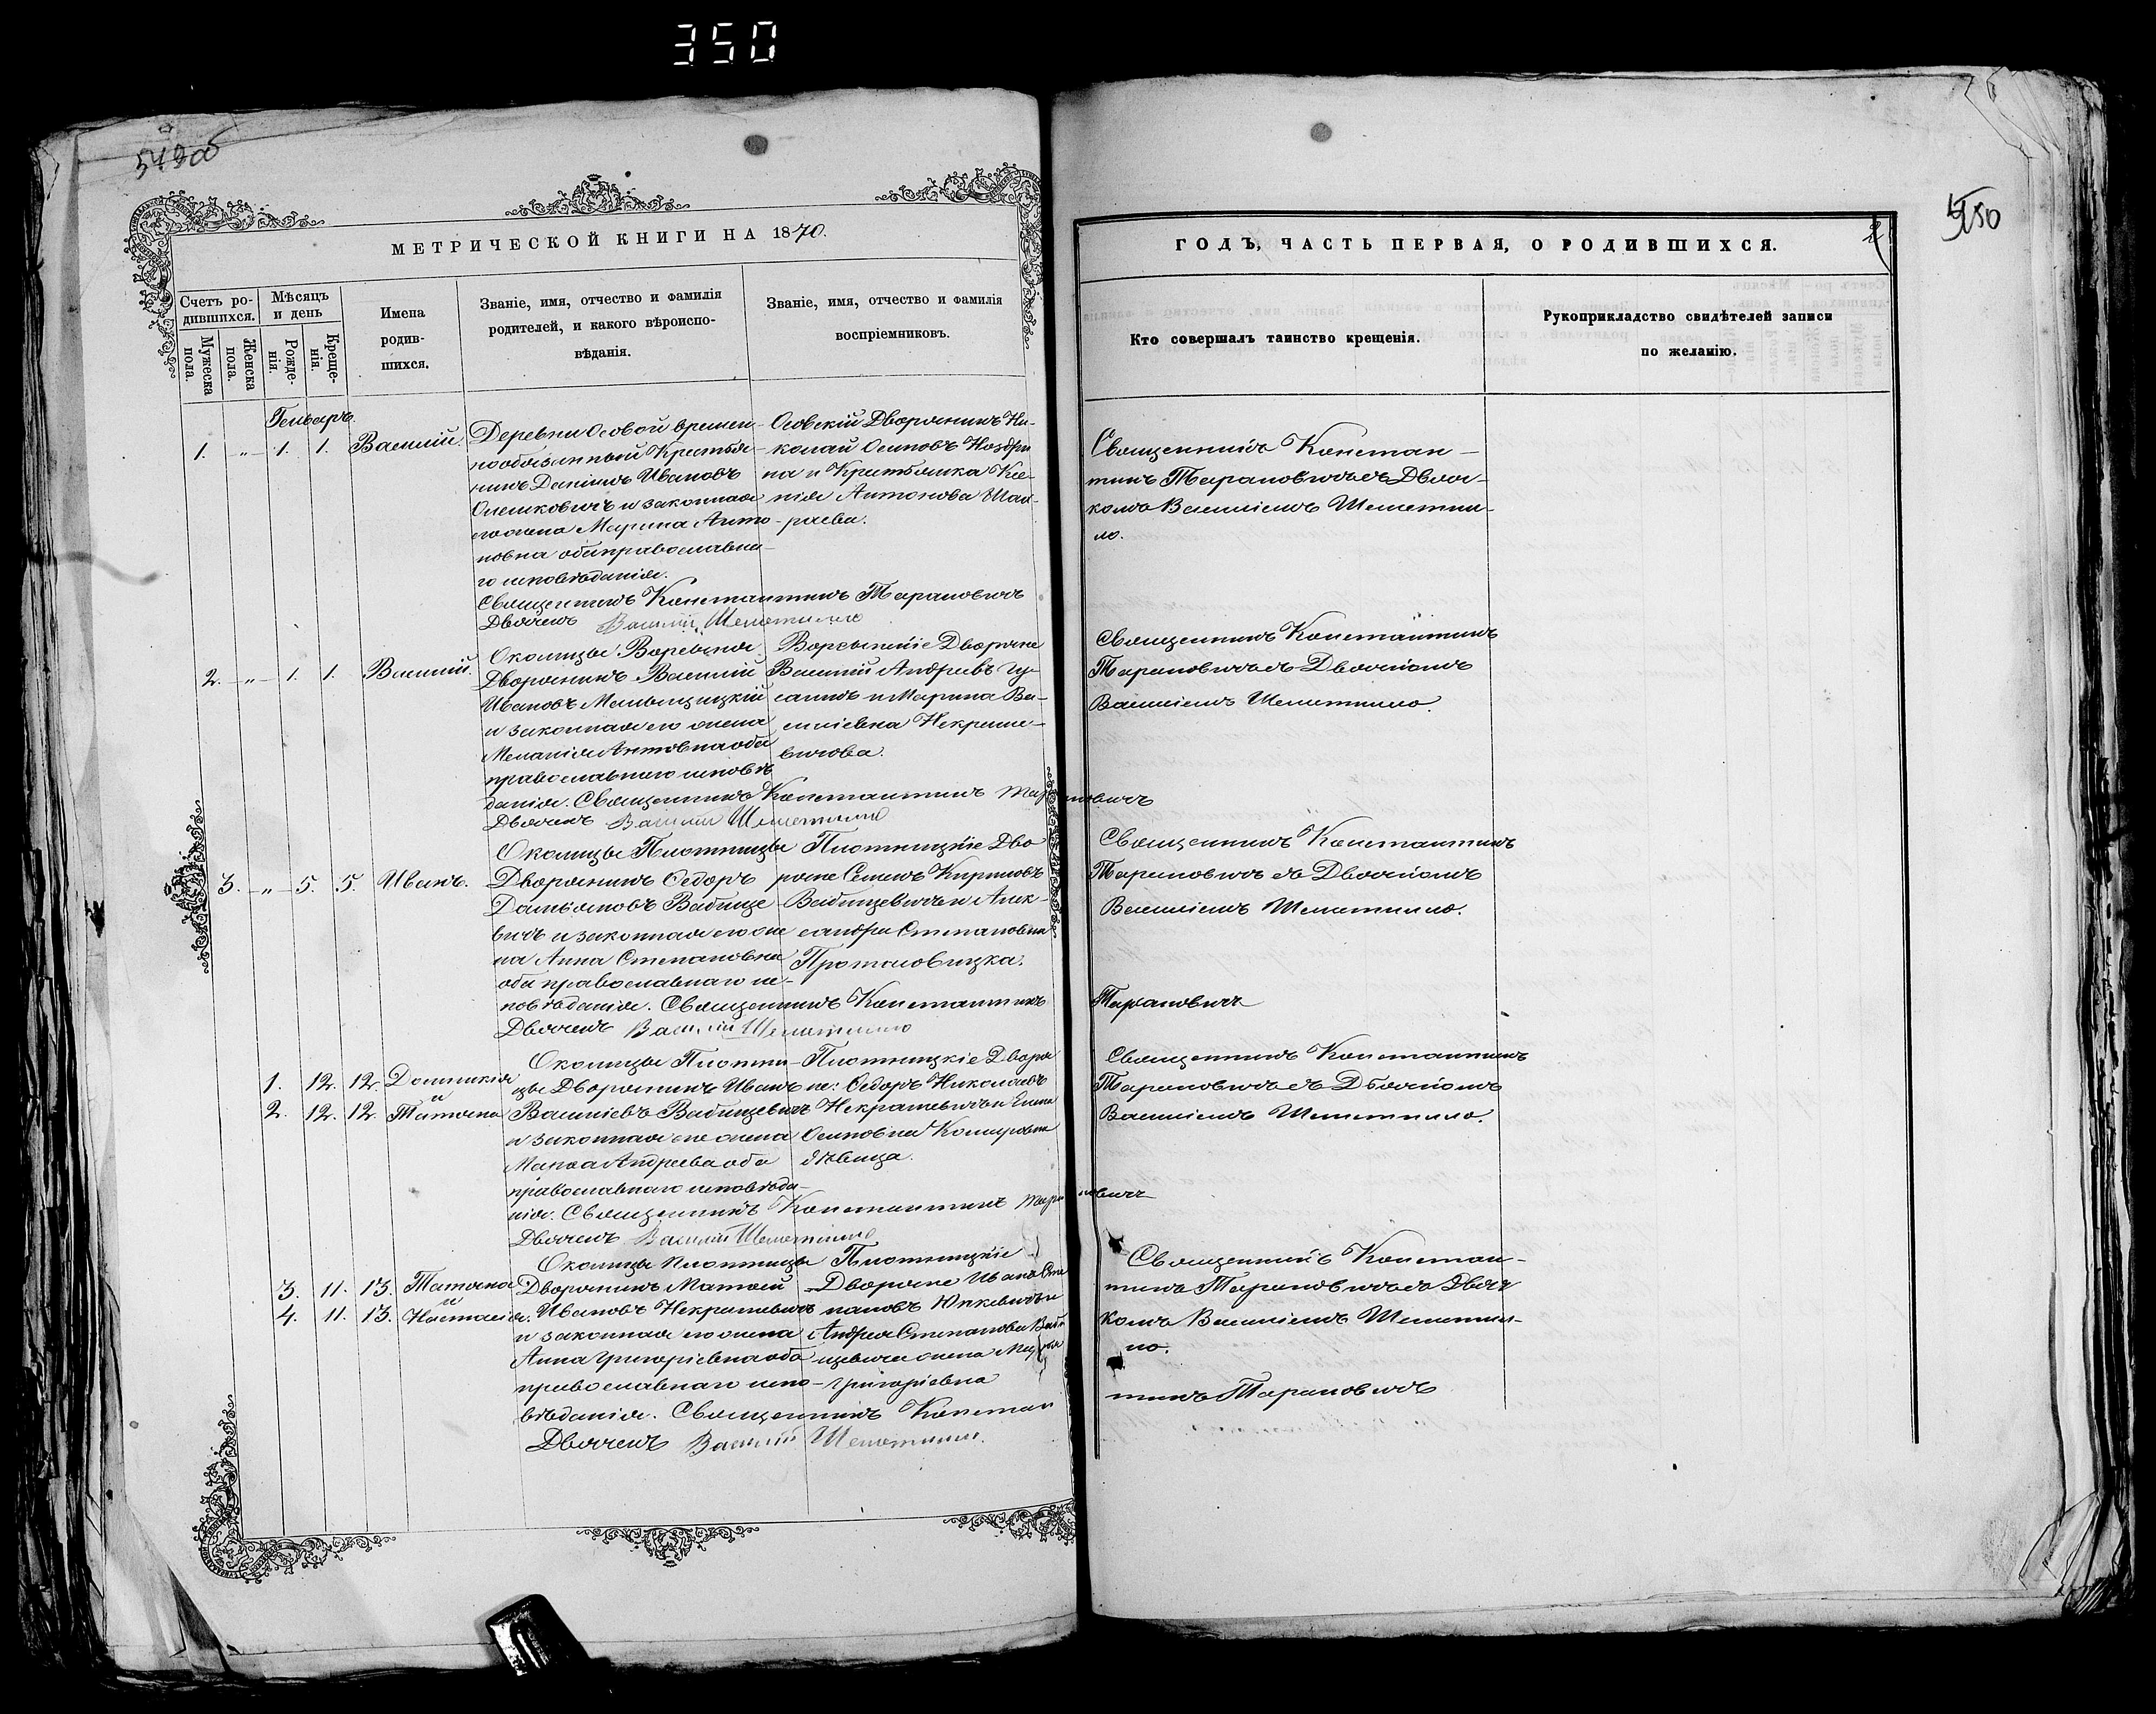 350
549об
550
2
МЕТРИЧЕСКОЙ КНИГИ НА 1870.
Счетъ ро-
дившихся.
Мѣсяцъ
и день
Мужеска
пола.
Женска
пола.
Рожде-
нія.
Креще-
нія.
Имена
родив-
шихся.
Званіе, имя, отчество и фамилія
родителей, и какого вѣроиспо-
вѣданія.
Званіе, имя, отчество и фамилія
воспріемниковъ.
ГОДЪ, ЧАСТЬ ПЕРВАЯ, О РОДИВШИХСЯ.
Кто совершалъ таинство крещенія.
Рукоприкладство свидѣтелей записи
по желанію.
Генварь.
1. „ 1. 1. Василій.
Деревни Осовой времен-
нообязанный Крестья-
нинъ Данiилъ Ивановъ
и законная
его жена Марина Анто-
новна оба православна-
го исповѣданія.
Священникъ Константинъ Тарановичъ
Дьячекъ Василій Шеметилло
Осовскій Дворянинъ Ни-
колай Осиповъ Ноздри
на и Крестьянка Ксе-
нія Антонова Шах-
раева.
Священникъ Констан-
тинъ Тарановичъ съ Дьяч-
комъ Василіемъ Шеметил-
ло.
2. „ 1. 1. Василій.
Околицы Ворсыния
Дворянинъ Василій
Ивановъ
и законная его жена
Меланія Антовна оба
православнаго исповѣ
данія. Священникъ Константинъ Тарановичъ
Дьячекъ Василій Шеметилло
Дворяне
Василій Андреевъ Гу-
салимъ и Марина Ва-
силіевна Некраше-
вичова.
Священникъ Константинъ
Тарановичъ съ Дьячкомъ
Василіемъ Шеметилло.
3. „ 5. 5. Иванъ.
Околицы Плотницы
Дворянинъ Ѳедоръ
Дамьяновъ Вабище-
вичъ и законная его же
на Анна Степановна
оба православнаго ис-
повѣданія. Священникъ Константинъ
Дьячекъ Василій Шеметилло
Плотницкіе Дво
ряне Семенъ Кириловъ
Вабищевичъ и Алек-
сандра Степановна
Протасовицка.
Священникъ Константинъ
Тарановичъ съ Дьячкомъ
Василіемъ Шеметилло.
Тарановичъ
1. 12. 12. Домникія
и
2. 12. 12. Татьяна
Околицы Плотни-
цы Дворянинъ Иванъ
Василіевъ Вабищевичъ
и законная его жена
Марья Андреева оба
православнаго исповѣда-
нія. Священникъ Константинъ Тарановичъ
Дьячекъ Василій Шеметилло
Плотницкіе Дворя
не: Ѳедоръ Николаевъ
Некрашевичъ и Елена
Осиповна
дѣвица.
Священникъ Константинъ
Тарановичъ съ Дьячкомъ
Василіемъ Шеметилло.
3. 11. 13. Татьяна
и
4. 11. 13. Настасія.
Околицы Плотницы
Дворянинъ Матѳей
Ивановъ Некрашевичъ
и законная его жена
Анна Григоріевна оба
православнаго испо-
вѣданія. Священникъ Констан
Дьячекъ Василій Шеметилло.
Плотницкіе
Дворяне Иванъ Сте
пановъ Юпкевичъ и
Андрея Степанова Ваби
щевича жена
Григоріевна
Священникъ Констан-
тинъ Тарановичъ съ Дьяч
комъ Василіемъ Шеметил-
ло.
тинъ Тарановичъ